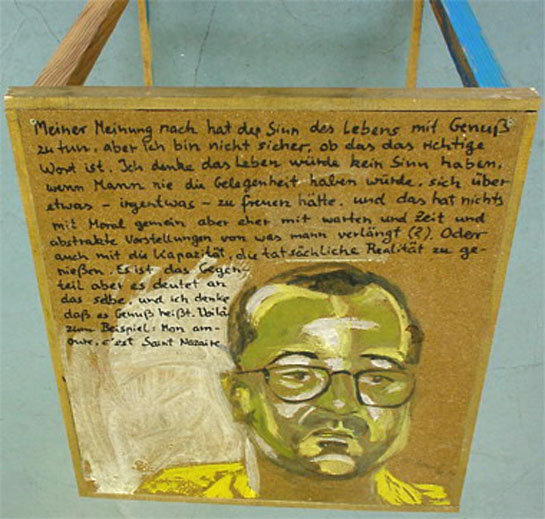 Meiner Meinung nach hat der Sinn des Lebens mit Genuß
zu tun, aber ich bin nicht sicher, ob das das richtige
Wort ist. Ich denke das Leben würde kein Sinn haben,
wenn Mann nie die Gelegenheit haben würde, sich über
etwas – irgentwas – zu freuen hätte, und das hat nichts
mit Moral gemein aber eher mit warten und Zeit und
abstrakte Vorstellungen von was mann verlängt (?). Oderr
auch mit die Kapazität, die tatsächliche Realität zu ge-
nießen. Es ist das Gegen-
teil aber es deutet an
das selbe, und ich denke
daß es Genuß heißt. Voilà
zum Beispiel: Mon am-
oure, c'est Saint Nazaire